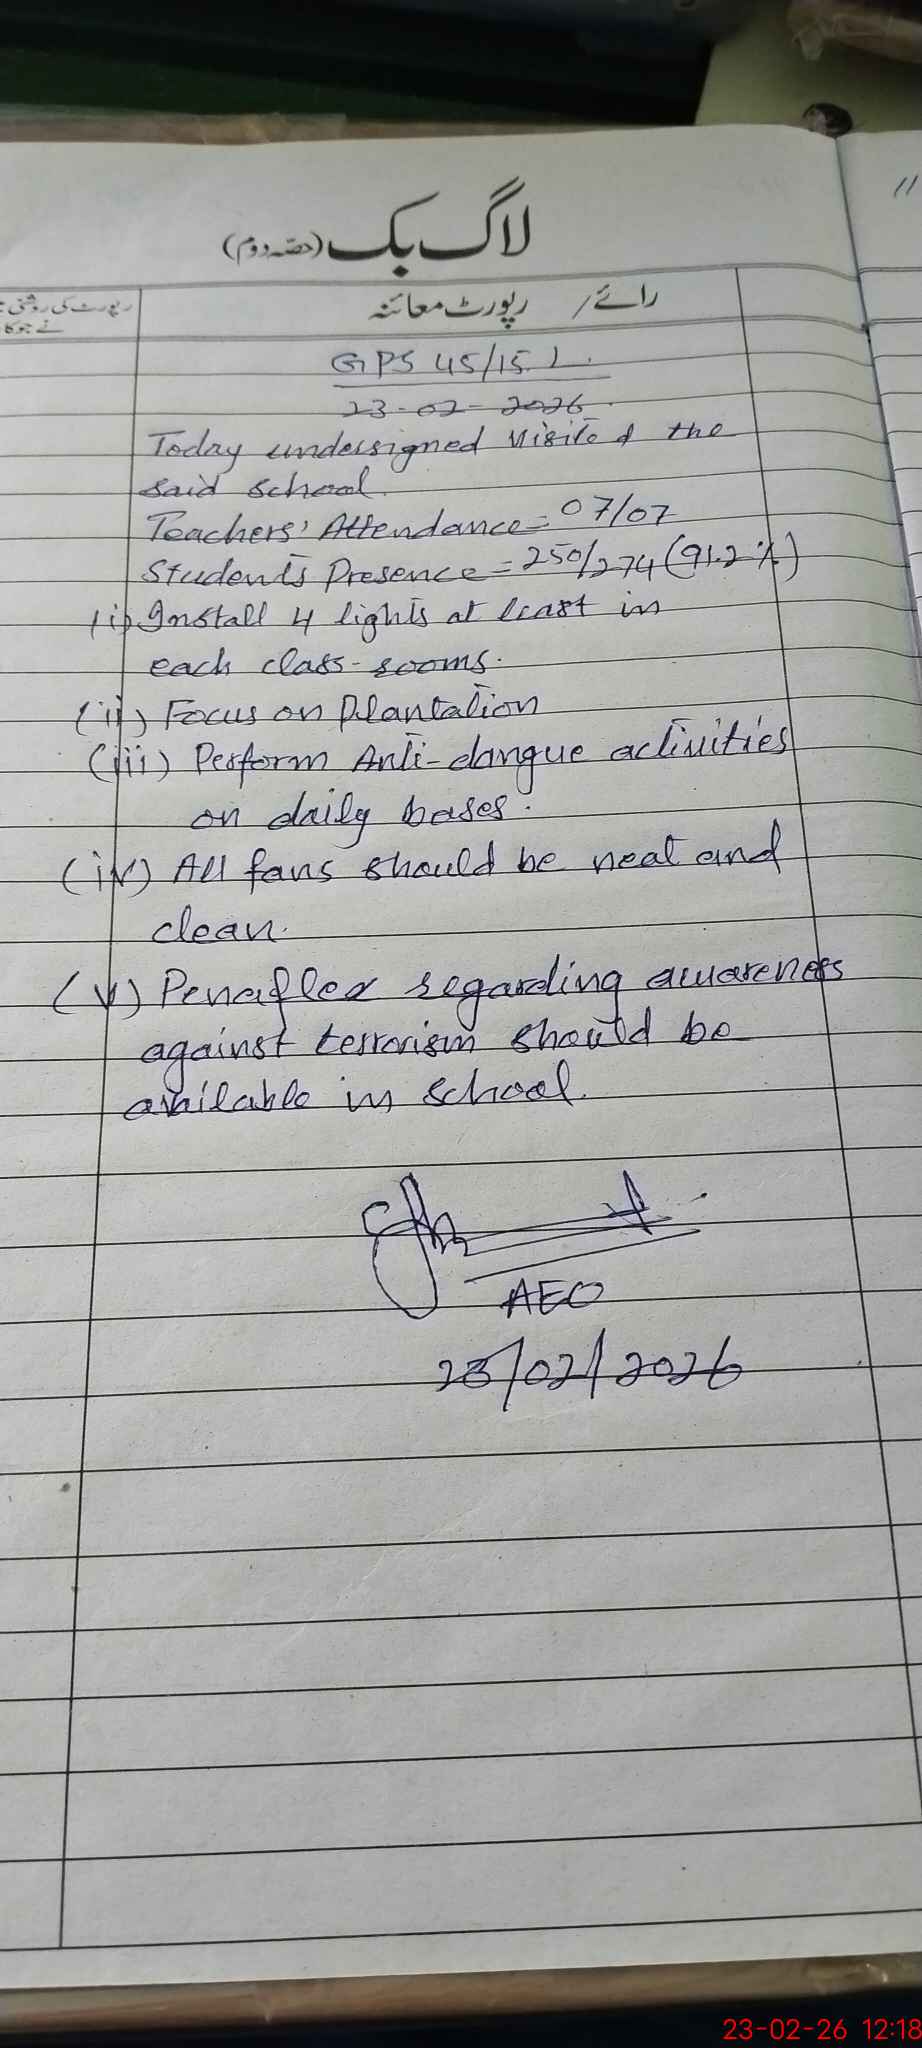 لاگ بک (حصہ دوم)
رائے / رپورٹ معائنہ
رپورٹ کی روشنی
نے جو کا
GPS 45/15.L.
23-02-2026.
Today undersigned visited the
said school.
Teachers' Attendance = 07/07
Students Presence = 250/274 (91.2%)
(i) Install 4 lights at least in
each class-rooms.
(ii) Focus on Plantation
(iii) Perform Anti-dangue activities
on daily bases.
(iv) All fans should be neat and
clean.
(v) Penaflex regarding awareness
against terrorism should be
available in school.
AEO
23/02/2026
23-02-26 12:18